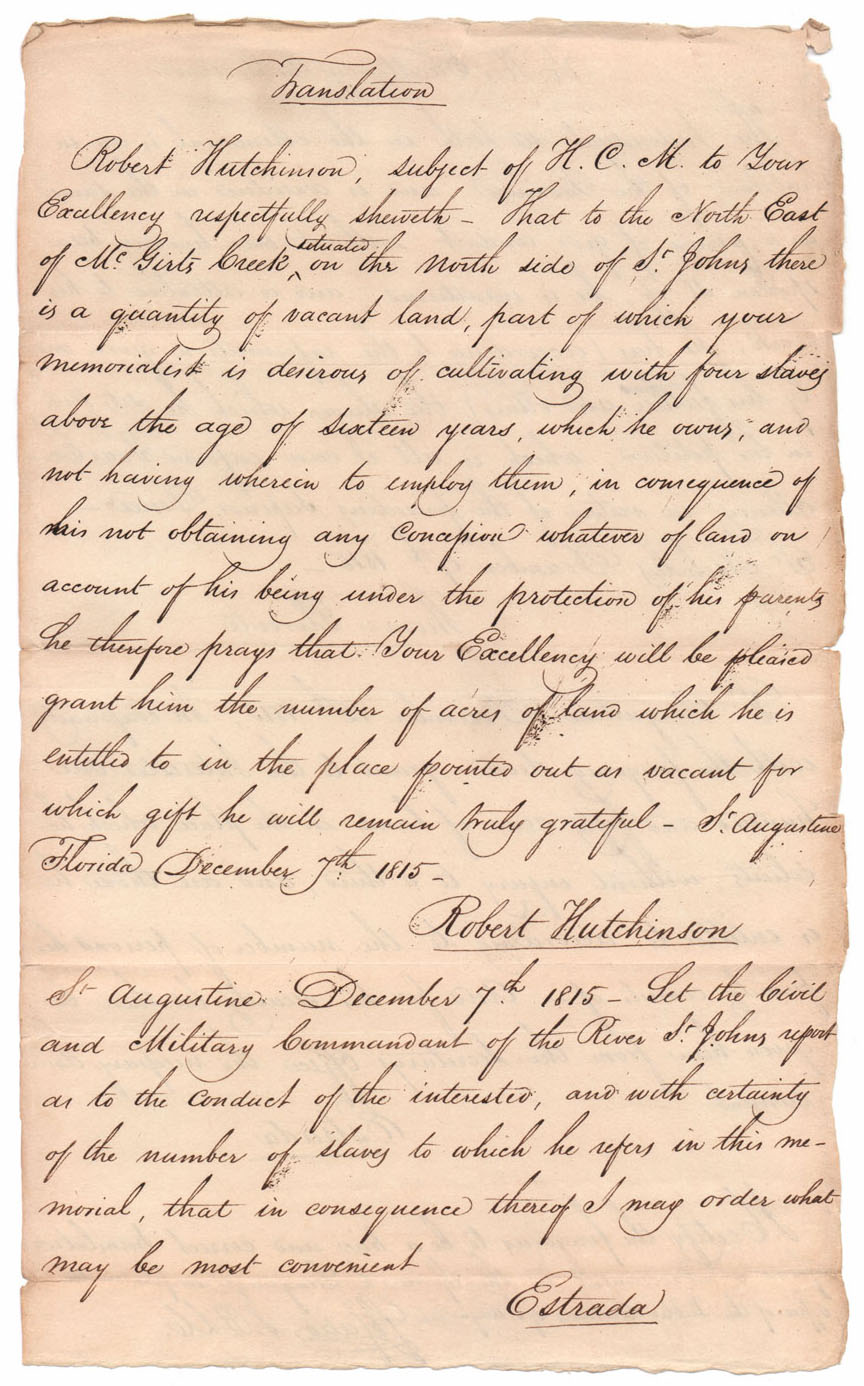 Translation
Robert Hutchinson, subject of H. C. M. to Your
Excellency respectfully sheweth - That to the North East
of Mc Girts Creek situated on the north side of St Johns there
is a quantity of vacant land, part of which your
memorialist is desirous of cultivating with four slaves
above the age of sixteen years, which he owns, and
not having wherein to employ them, in consequence of
his not obtaining any Concession whatever of land on
account of his being under the protection of his parents
he therefore prays that Your Excellency will be pleased
grant him the number of acres of land which he is
entitled to in the place pointed out as vacant for
which gift he will remain truly grateful - St Augustine
Florida December 7th 1815 -
Robert Hutchinson
St Augustine December 7th 1815 - Let the Civil
and Military Commandant of the River St Johns report
as to the conduct of the interested, and with certainty
of the number of slaves to which he refers in this me-
morial, that in consequence thereof I may order what
may be most convenient
Estrada